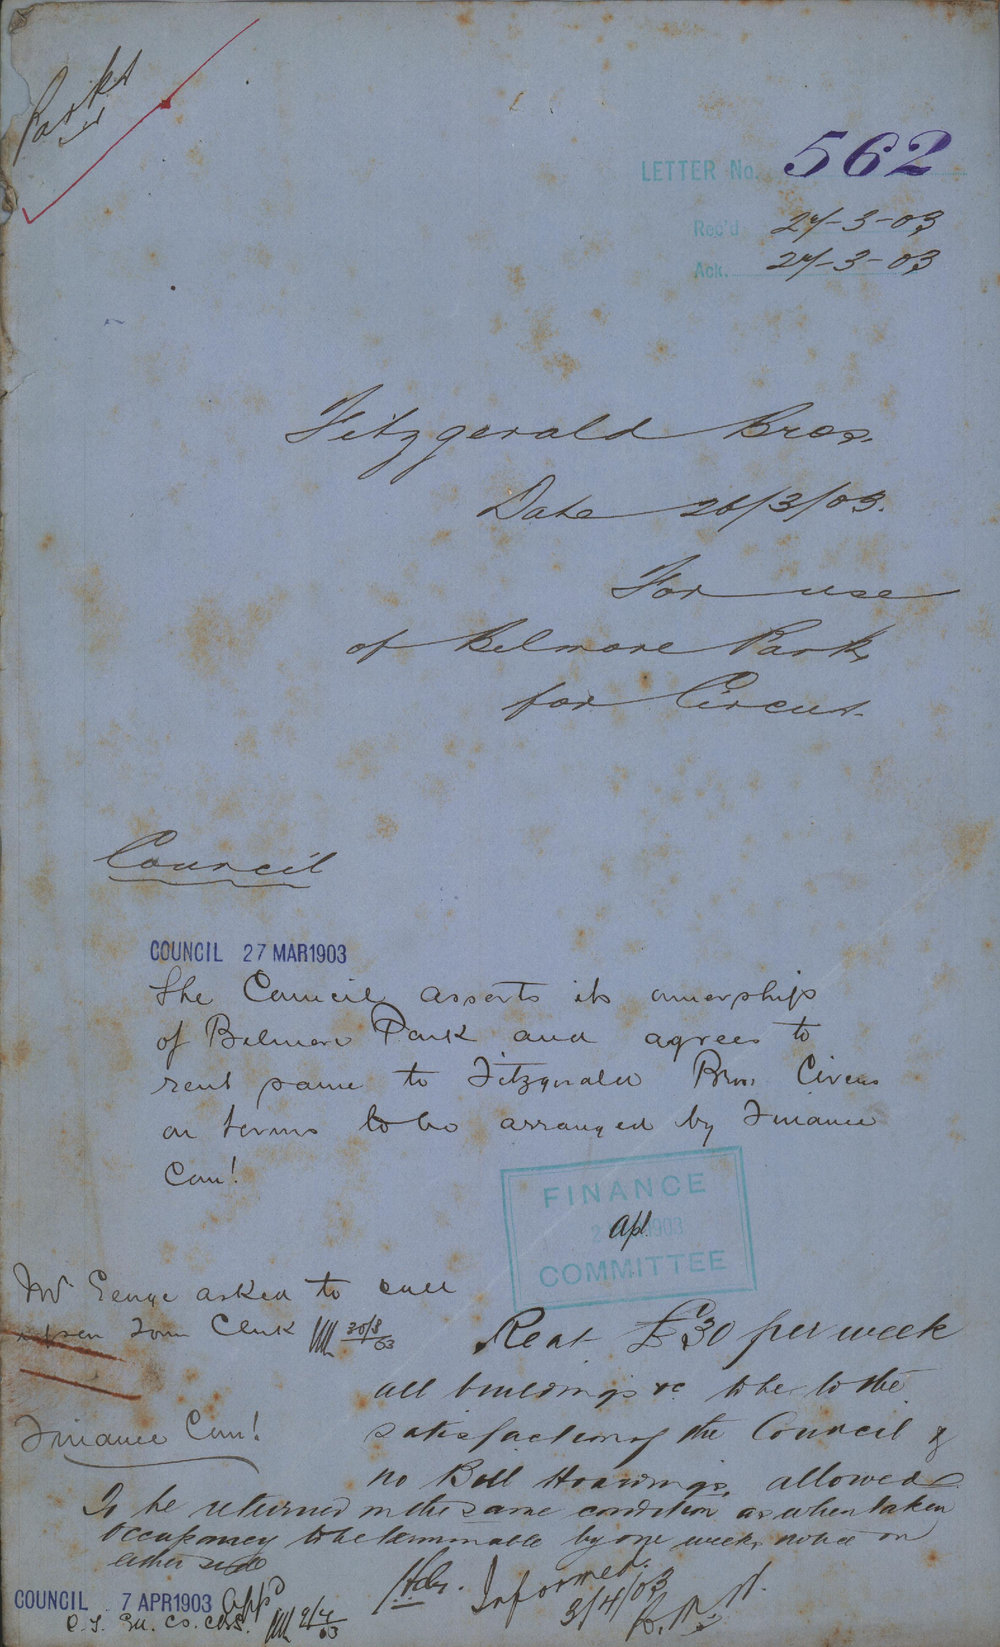 Parks
LETTER No. 562
Rec'd 27-3-03
Ack. 27-3-03
Fitzgerald Bros.
Date 26/3/03.
For use
of Belmore Park
for Circus.
Council
COUNCIL 27 MAR 1903
The Council asserts its ownership
of Belmore Park and agrees to
rent same to Fitzgerald Bros. Circus
on terms to be arranged by Finance
Com!
FINANCE
Apl. 1903
COMMITTEE
Mr George asked to call
upon Town Clerk 30/3/03
Rent £30 per week
all buildings &c to be to the
satisfaction of the Council &
no Bill Hoardings, allowed
Finance Com!
To be returned in the same condition as when taken
occupancy to be terminable by one weeks notice on
either side
Informed.
3/4/03
COUNCIL 7 APR 1903 appd